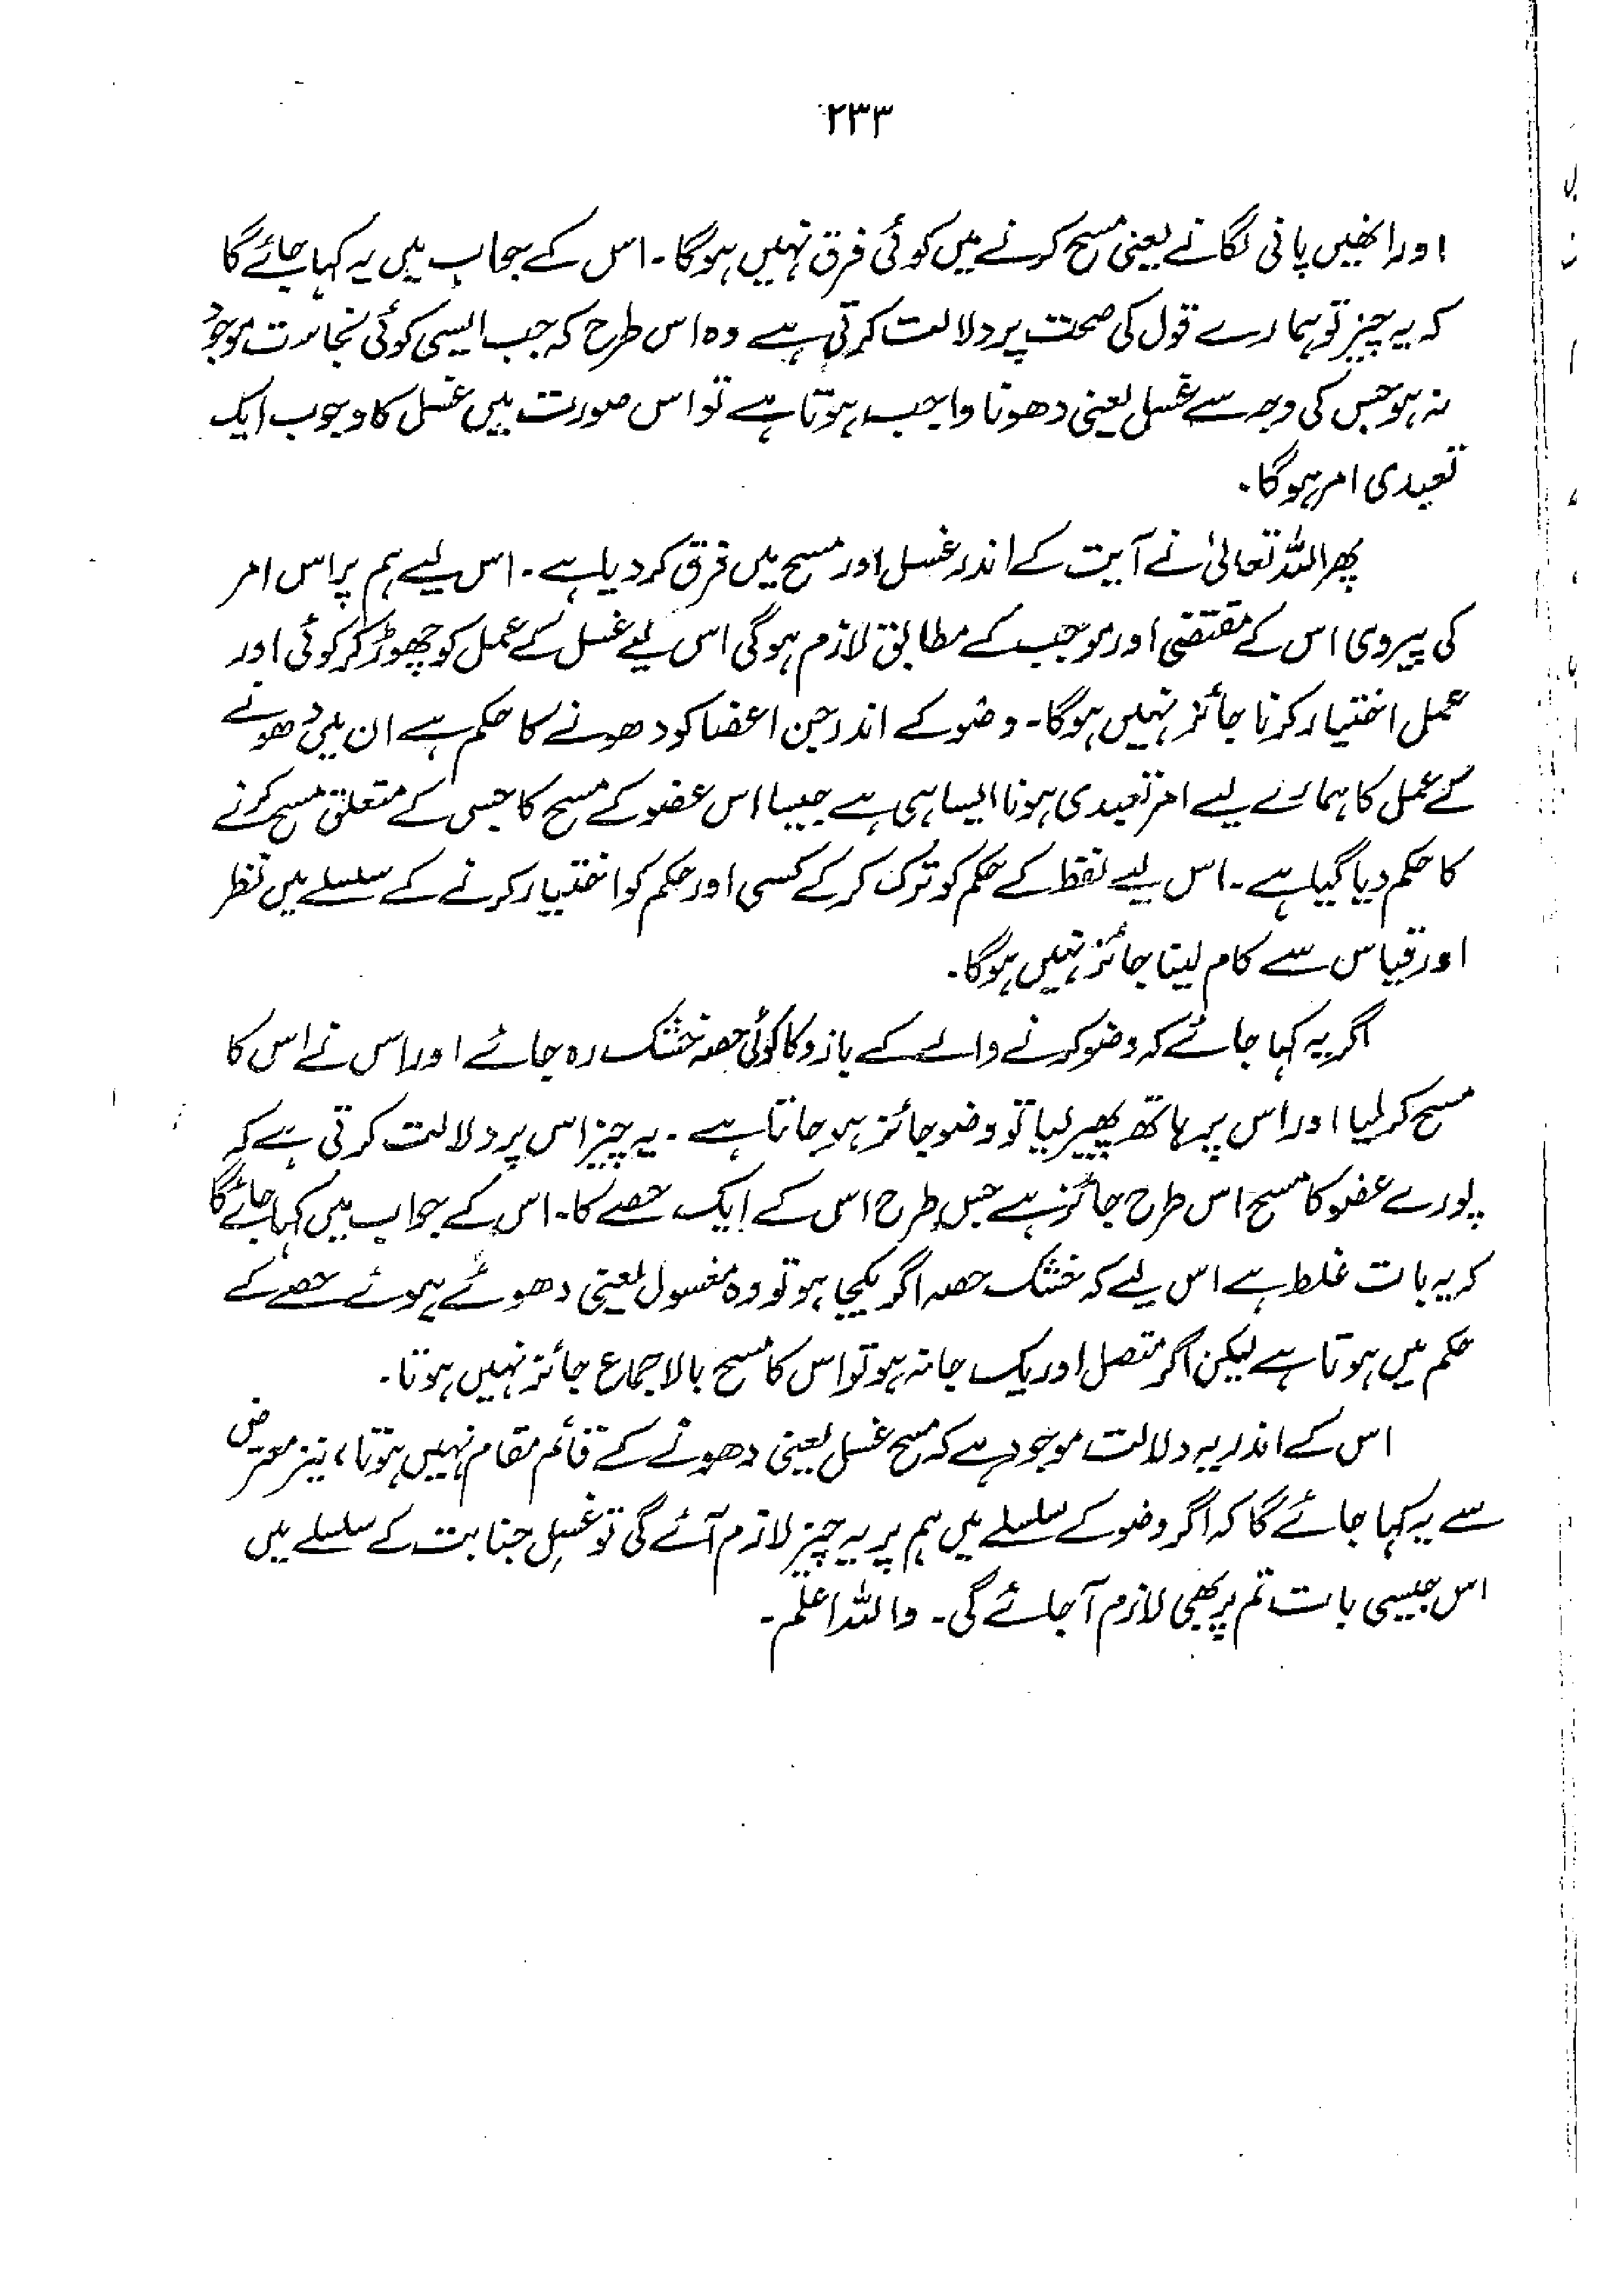 ۲۳۳
اور انھیں پانی لگانے یعنی مسح کرنے میں کوئی فرق نہیں ہوگا۔ اس کے جواب میں یہ کہا جائے گا
کہ یہ چیز تو ہمارے قول کی صحت پر دلالت کرتی ہے وہ اس طرح کہ جب ایسی کوئی نجاست موجود
نہ ہو جس کی وجہ سے غسل یعنی دھونا واجب ہوتا ہے تو اس صورت میں غسل کا وجوب ایک
تعبدی امر ہوگا۔
پھر اللہ تعالیٰ نے آیت کے اندر غسل اور مسح میں فرق کر دیا ہے۔ اس لیے ہم پر اس امر
کی پیروی اس کے مقتضیٰ اور موجب کے مطابق لازم ہوگی اس لیے غسل کے عمل کو چھوڑ کر کوئی اور
عمل اختیار کرنا جائز نہیں ہوگا۔ وضو کے اندر جن اعضا کو دھونے کا حکم ہے ان میں دھونے
کے عمل کا ہمارے لیے امر تعبدی ہونا ایسا ہی ہے جیسا اس عضو کے مسح کا جس کے متعلق مسح کرنے
کا حکم دیا گیا ہے۔ اس لیے لفظ کے حکم کو ترک کر کے کسی اور حکم کو اختیار کرنے کے سلسلے میں نظر
اور قیاس سے کام لینا جائز نہیں ہوگا۔
اگر یہ کہا جائے کہ وضو کرنے والے کے بازو کا کوئی حصہ خشک رہ جائے اور اس نے اس کا
مسح کر لیا اور اس پر ہاتھ پھیر لیا تو وضو جائز ہو جاتا ہے۔ یہ چیز اس پر دلالت کرتی ہے کہ
پورے عضو کا مسح اس طرح جائز ہے جس طرح اس کے ایک حصے کا۔ اس کے جواب میں کہا جائے گا
کہ یہ بات غلط ہے اس لیے کہ خشک حصہ اگر یکجا ہو تو وہ مغسول یعنی دھوئے ہوئے حصے کے
حکم میں ہوتا ہے لیکن اگر متصل اور یک جا نہ ہو تو اس کا مسح بالاجماع جائز نہیں ہوتا۔
اس کے اندر یہ دلالت موجود ہے کہ مسح غسل یعنی دھونے کے قائم مقام نہیں ہوتا، نیز معترض
سے یہ کہا جائے گا کہ اگر وضو کے سلسلے میں ہم پر یہ چیز لازم آئے گی تو غسل جنابت کے سلسلے میں
اس جیسی بات تم پر بھی لازم آجائے گی۔ واللہ اعلم۔